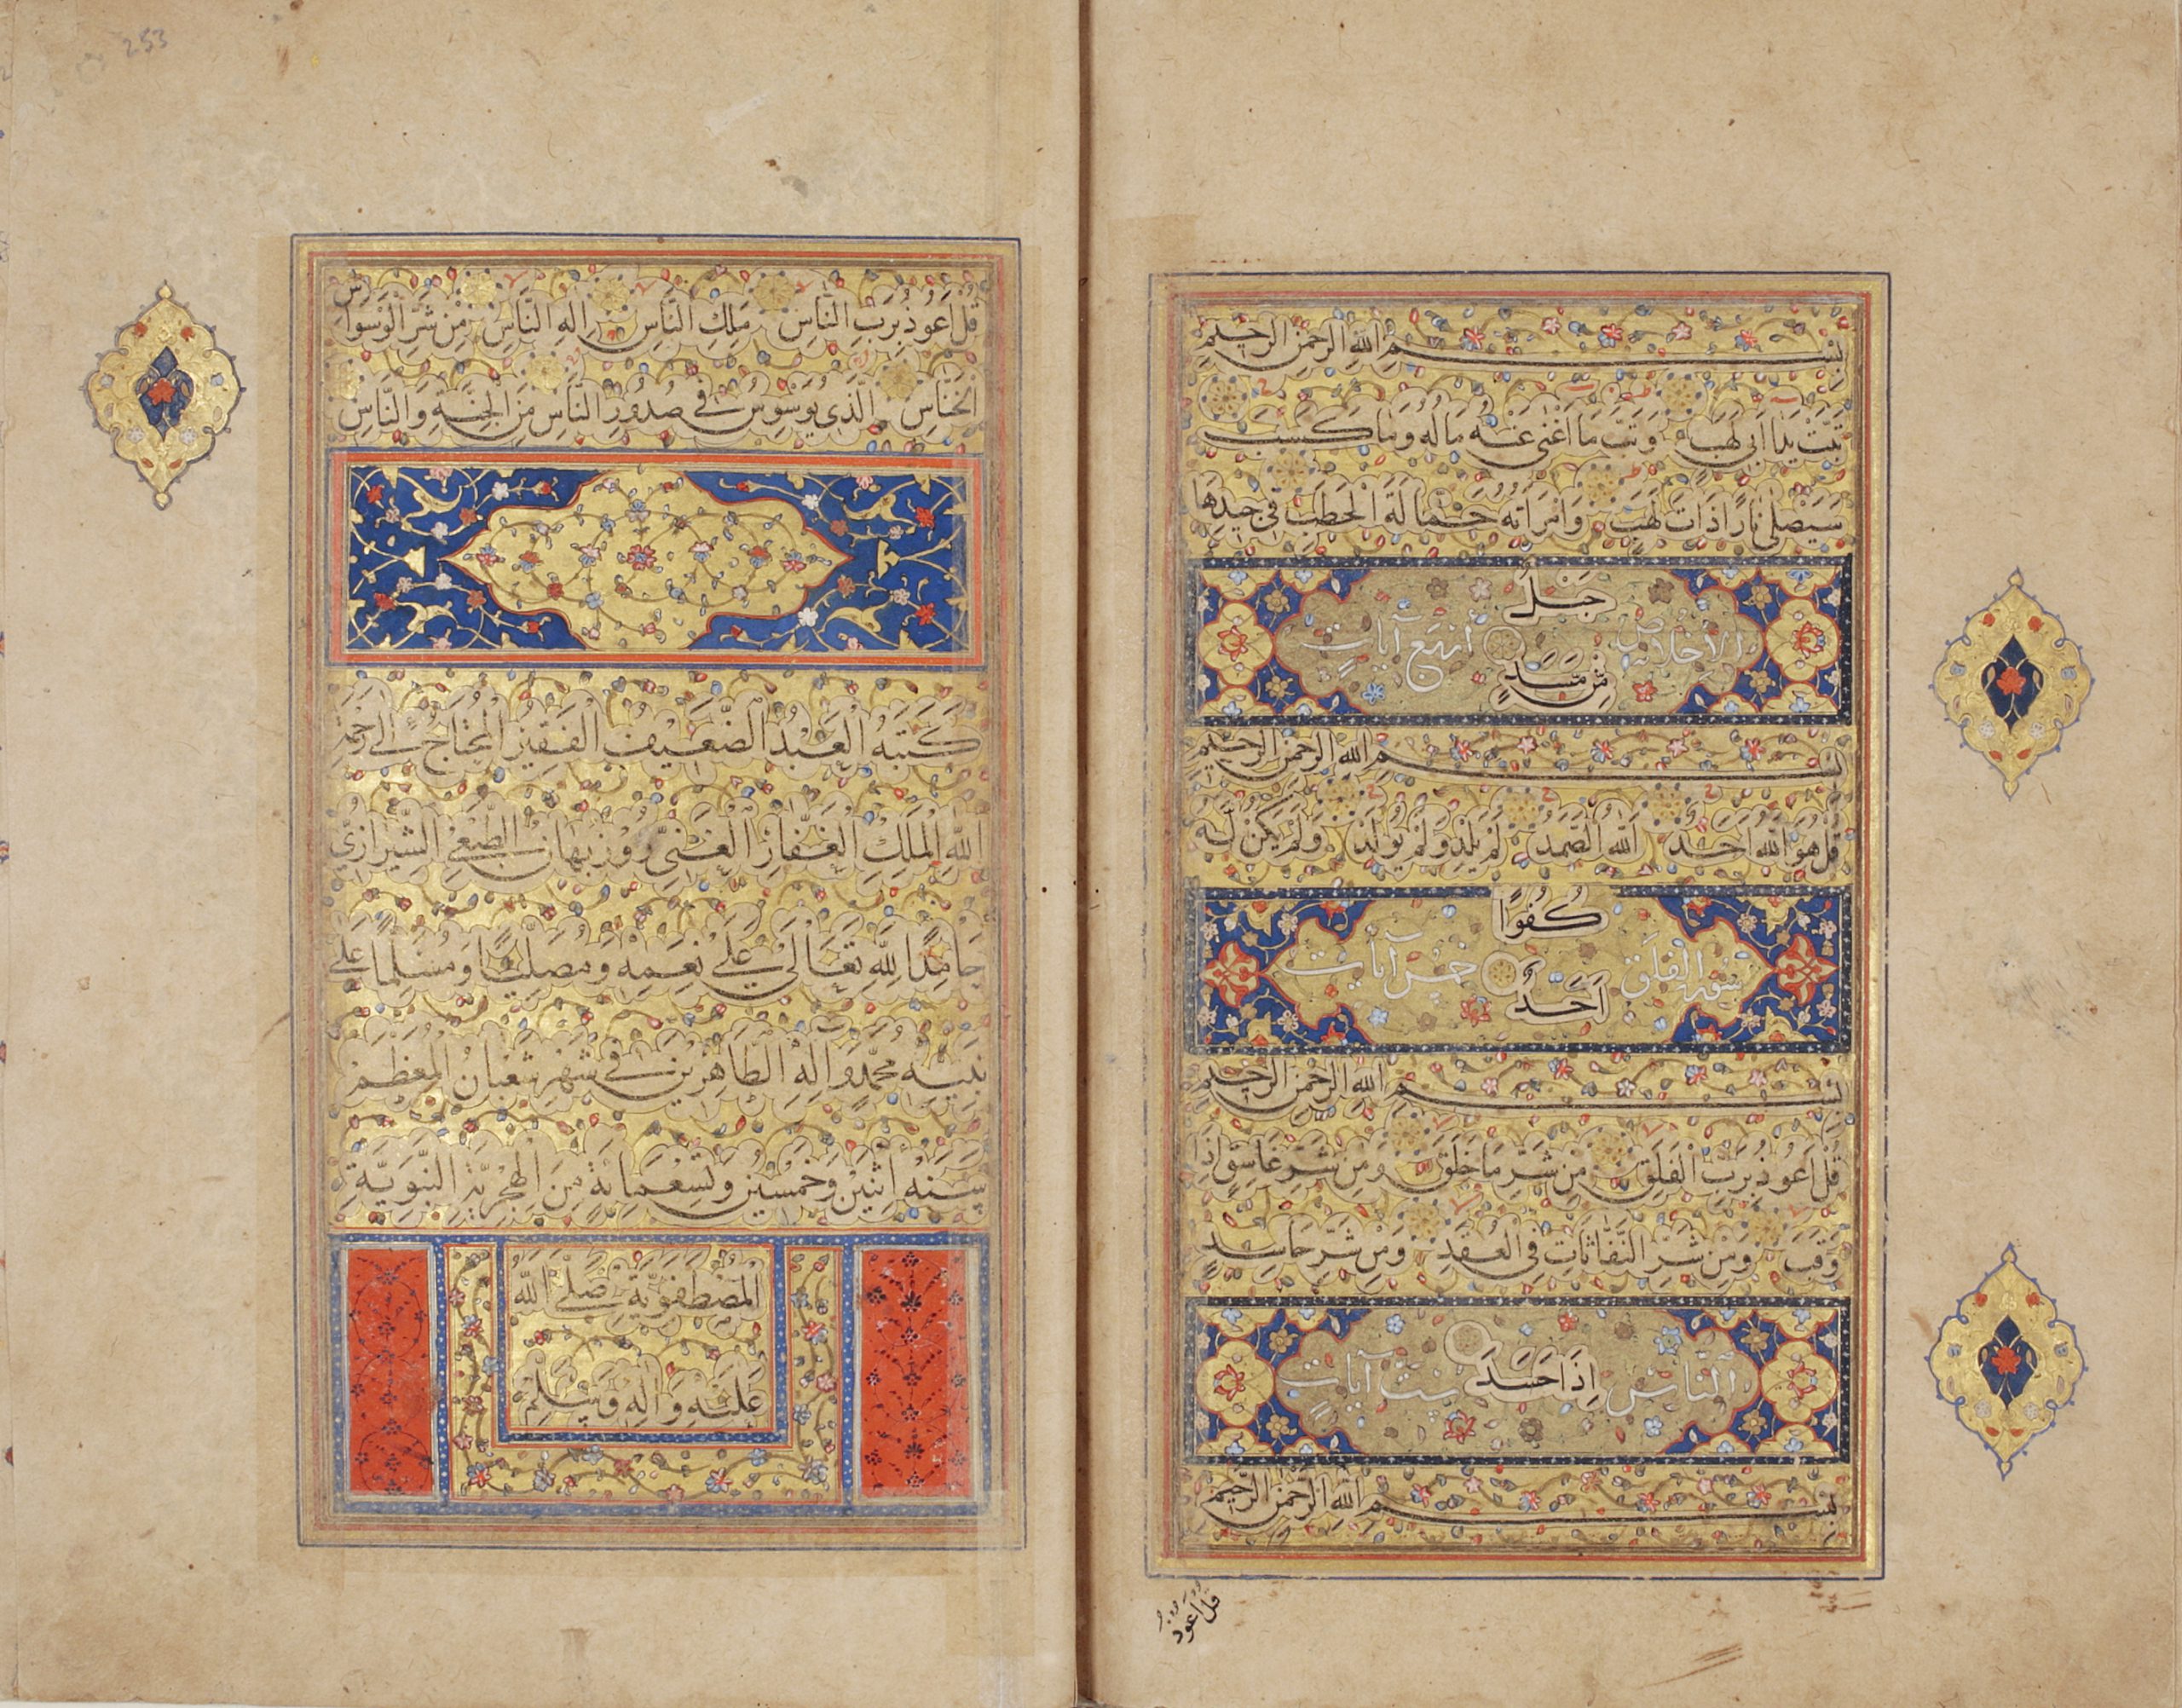 بِسْمِ اللَّهِ الرَّحْمَٰنِ الرَّحِيمِ
تَبَّتْ يَدَا أَبِي لَهَبٍ وَتَبَّ مَا أَغْنَىٰ عَنْهُ مَالُهُ وَمَا كَسَبَ
سَيَصْلَىٰ نَارًا ذَاتَ لَهَبٍ وَامْرَأَتُهُ حَمَّالَةَ الْحَطَبِ فِي جِيدِهَا
حَبْلٌ
الاخلاص اربع آيات
مِنْ مَسَدٍ
بِسْمِ اللَّهِ الرَّحْمَٰنِ الرَّحِيمِ
قُلْ هُوَ اللَّهُ أَحَدٌ اللَّهُ الصَّمَدُ لَمْ يَلِدْ وَلَمْ يُولَدْ وَلَمْ يَكُنْ لَهُ
كُفُوًا
سورة الفلق خمس آيات
أَحَدٌ
بِسْمِ اللَّهِ الرَّحْمَٰنِ الرَّحِيمِ
قُلْ أَعُوذُ بِرَبِّ الْفَلَقِ مِنْ شَرِّ مَا خَلَقَ وَمِنْ شَرِّ غَاسِقٍ إِذَا
وَقَبَ وَمِنْ شَرِّ النَّفَّاثَاتِ فِي الْعُقَدِ وَمِنْ شَرِّ حَاسِدٍ
الناس إِذَا حَسَدَ ست آيات
بِسْمِ اللَّهِ الرَّحْمَٰنِ الرَّحِيمِ
قل اعوذ
253
قُلْ أَعُوذُ بِرَبِّ النَّاسِ مَلِكِ النَّاسِ إِلَٰهِ النَّاسِ مِنْ شَرِّ الْوَسْوَاسِ
الْخَنَّاسِ الَّذِي يُوَسْوِسُ فِي صُدُورِ النَّاسِ مِنَ الْجِنَّةِ وَالنَّاسِ
كَتَبَهُ الْعَبْدُ الضَّعِيفُ الْفَقِيرُ الْمُحْتَاجُ إِلَى رَحْمَةِ
اللَّهِ الْمَلِكِ الْغَفَّارِ الْغَنِيِّ رُوزْبِهَانُ الطَّبْعِيُّ الشِّيرَازِيُّ
حَامِدًا لِلَّهِ تَعَالَى عَلَى نِعَمِهِ وَمُصَلِّيًا وَمُسَلِّمًا عَلَى
نَبِيِّهِ مُحَمَّدٍ وَآلِهِ الطَّاهِرِينَ فِي شَهْرِ شَعْبَانَ الْمُعَظَّمِ
سَنَةَ اثْنَيْنِ وَخَمْسِينَ وَتِسْعَمِائَةٍ مِنَ الْهِجْرِيَّةِ النَّبَوِيَّةِ
الْمُصْطَفَوِيَّةِ صَلَّى اللَّهُ
عَلَيْهِ وَآلِهِ وَسَلَّمَ